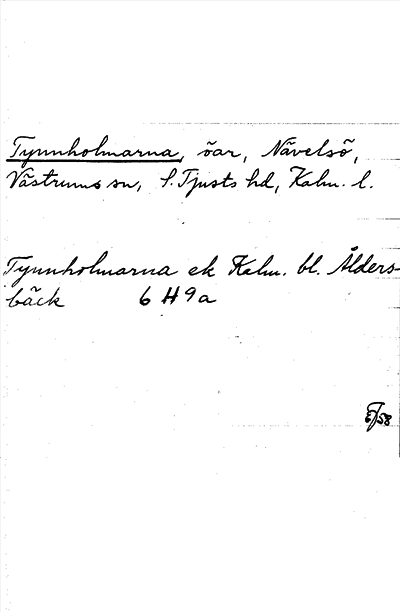 Tynnholmarna, öar, Nävelsö,
Västrums sn, S. Tjusts hd, Kalm. l.
Tynnholmarna ek Kalm. bl. Ålders-
bäck 6 H 9 a
/58